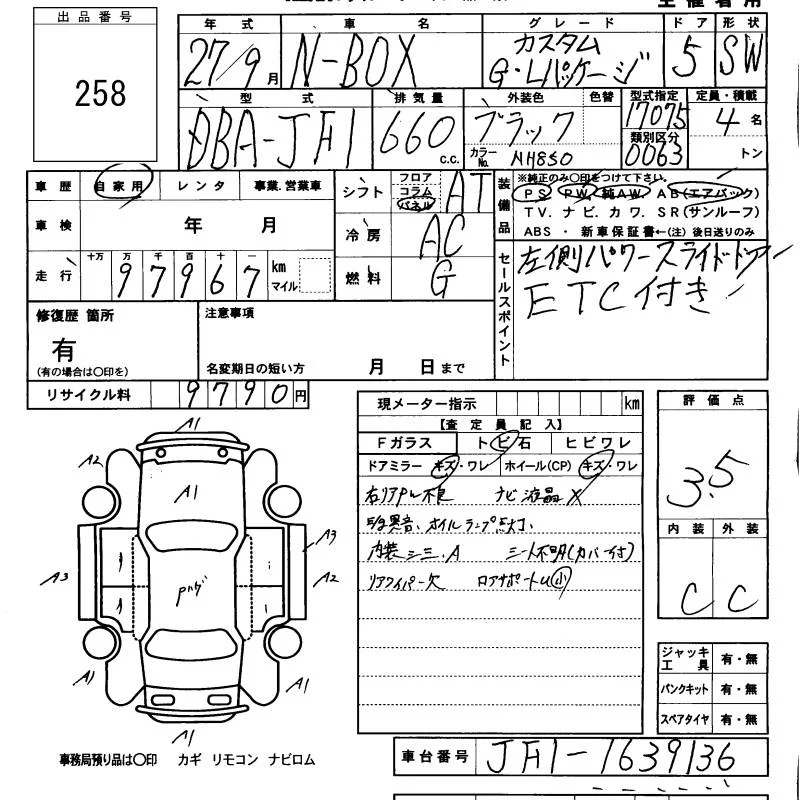 出品番号
258
年式 車名 グレード ドア 形状
27/9月 N-BOX カスタム G・Lパッケージ 5 SW
型式 排気量 外装色 色替 型式指定 定員・積載
DBA-JF1 660 c.c. ブラック 17075 4名
カラーNo. NH850 類別区分 0063 トン
車歴 自家用 レンタ 事業.営業車
シフト フロア コラム パネル AT
装備品 ※純正のみ〇印をつけて下さい。
PS PW 純AW. AB(エアバック)
TV. ナビ. カワ. SR(サンルーフ)
ABS ・ 新車保証書←(注) 後日送りのみ
車検 年 月
冷房 AC
走行 十万 万 千 百 十 一
97967 km マイル
燃料 G
セールスポイント
左側パワースライドドア
ETC付き
修復歴 箇所
有
(有の場合は〇印を)
注意事項
名変期日の短い方 月 日まで
リサイクル料 9790円
現メーター指示 km
【査定員記入】
Fガラス トビ石 ヒビワレ
ドアミラー キズ・ワレ ホイール(CP) キズ・ワレ
ナビ液晶 X
異音、オイルランプ点灯、
内装シミ.A シート不明(カバー付)
リアワイパー欠 ロアサポートU小
評価点
3.5
内装 外装
C C
A1
A2
A1
A3
A3
A2
A1
A1
A1
ジャッキ工具 有・無
パンクキット 有・無
スペアタイヤ 有・無
事務局預り品は〇印 カギ リモコン ナビロム
車台番号 JF1-1639136